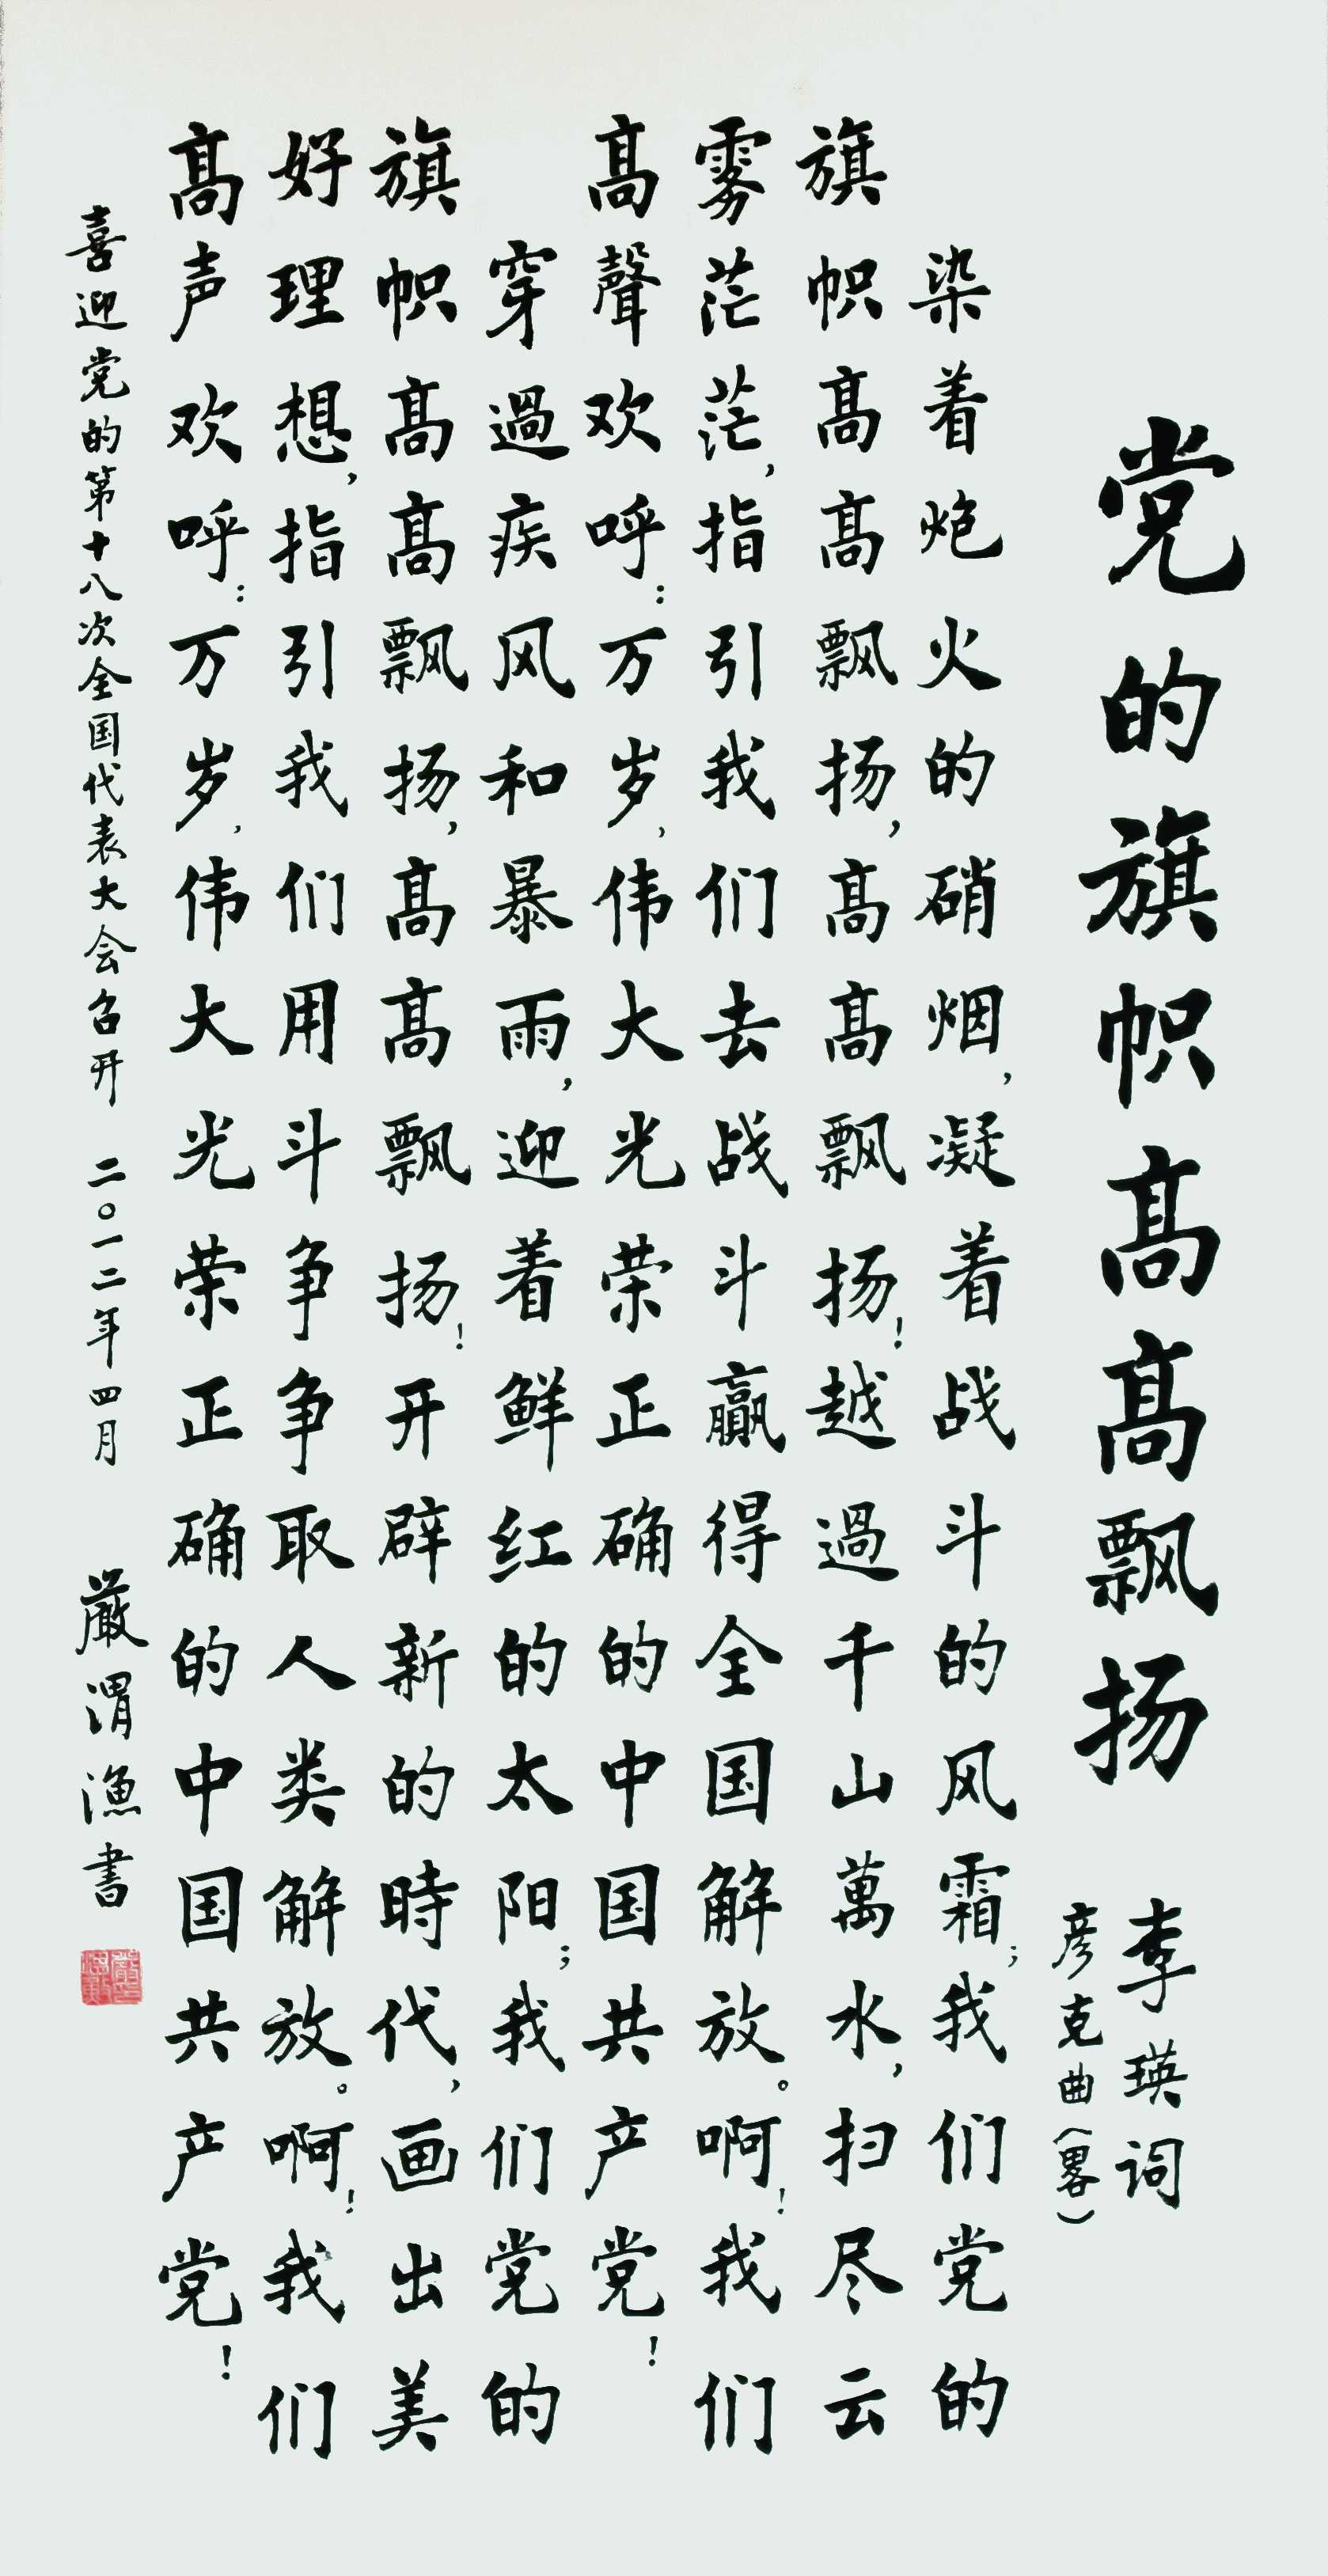 党的旗帜高高飘扬
李瑛词
彦克曲(畧)
染着炮火的硝烟,凝着战斗的风霜;我们党的
旗帜高高飘扬,高高飘扬!越過千山萬水,扫尽云
雾茫茫,指引我们去战斗赢得全国解放。啊!我们
高聲欢呼:万岁,伟大光荣正确的中国共产党!
穿過疾风和暴雨,迎着鲜红的太阳;我们党的
旗帜高高飘扬,高高飘扬!开辟新的時代,画出美
好理想,指引我们用斗争争取人类解放。啊!我们
高声欢呼:万岁,伟大光荣正确的中国共产党!
喜迎党的第十八次全国代表大会召开 二〇一二年四月 嚴渭漁書